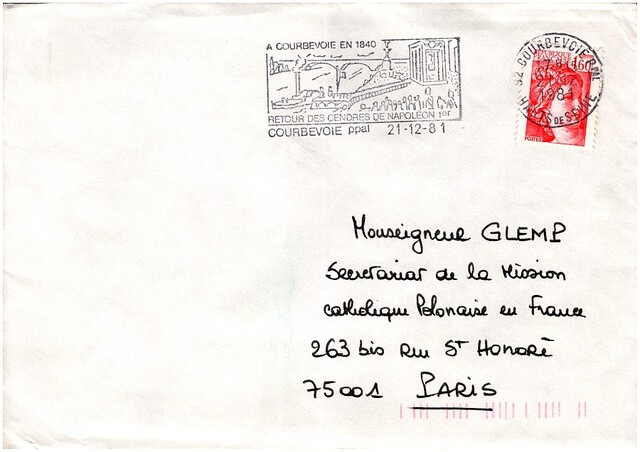 A COURBEVOIE EN 1840
RETOUR DES CENDRES DE NAPOLEON 1er
COURBEVOIE ppal 21-12-81
92 COURBEVOIE PPAL
1981
HAUTS DE SEINE
1,60
POSTES
Monseigneur GLEMP
Secretariat de la Mission
catholique Polonaise en France
263 bis Rue St Honoré
75001 PARIS